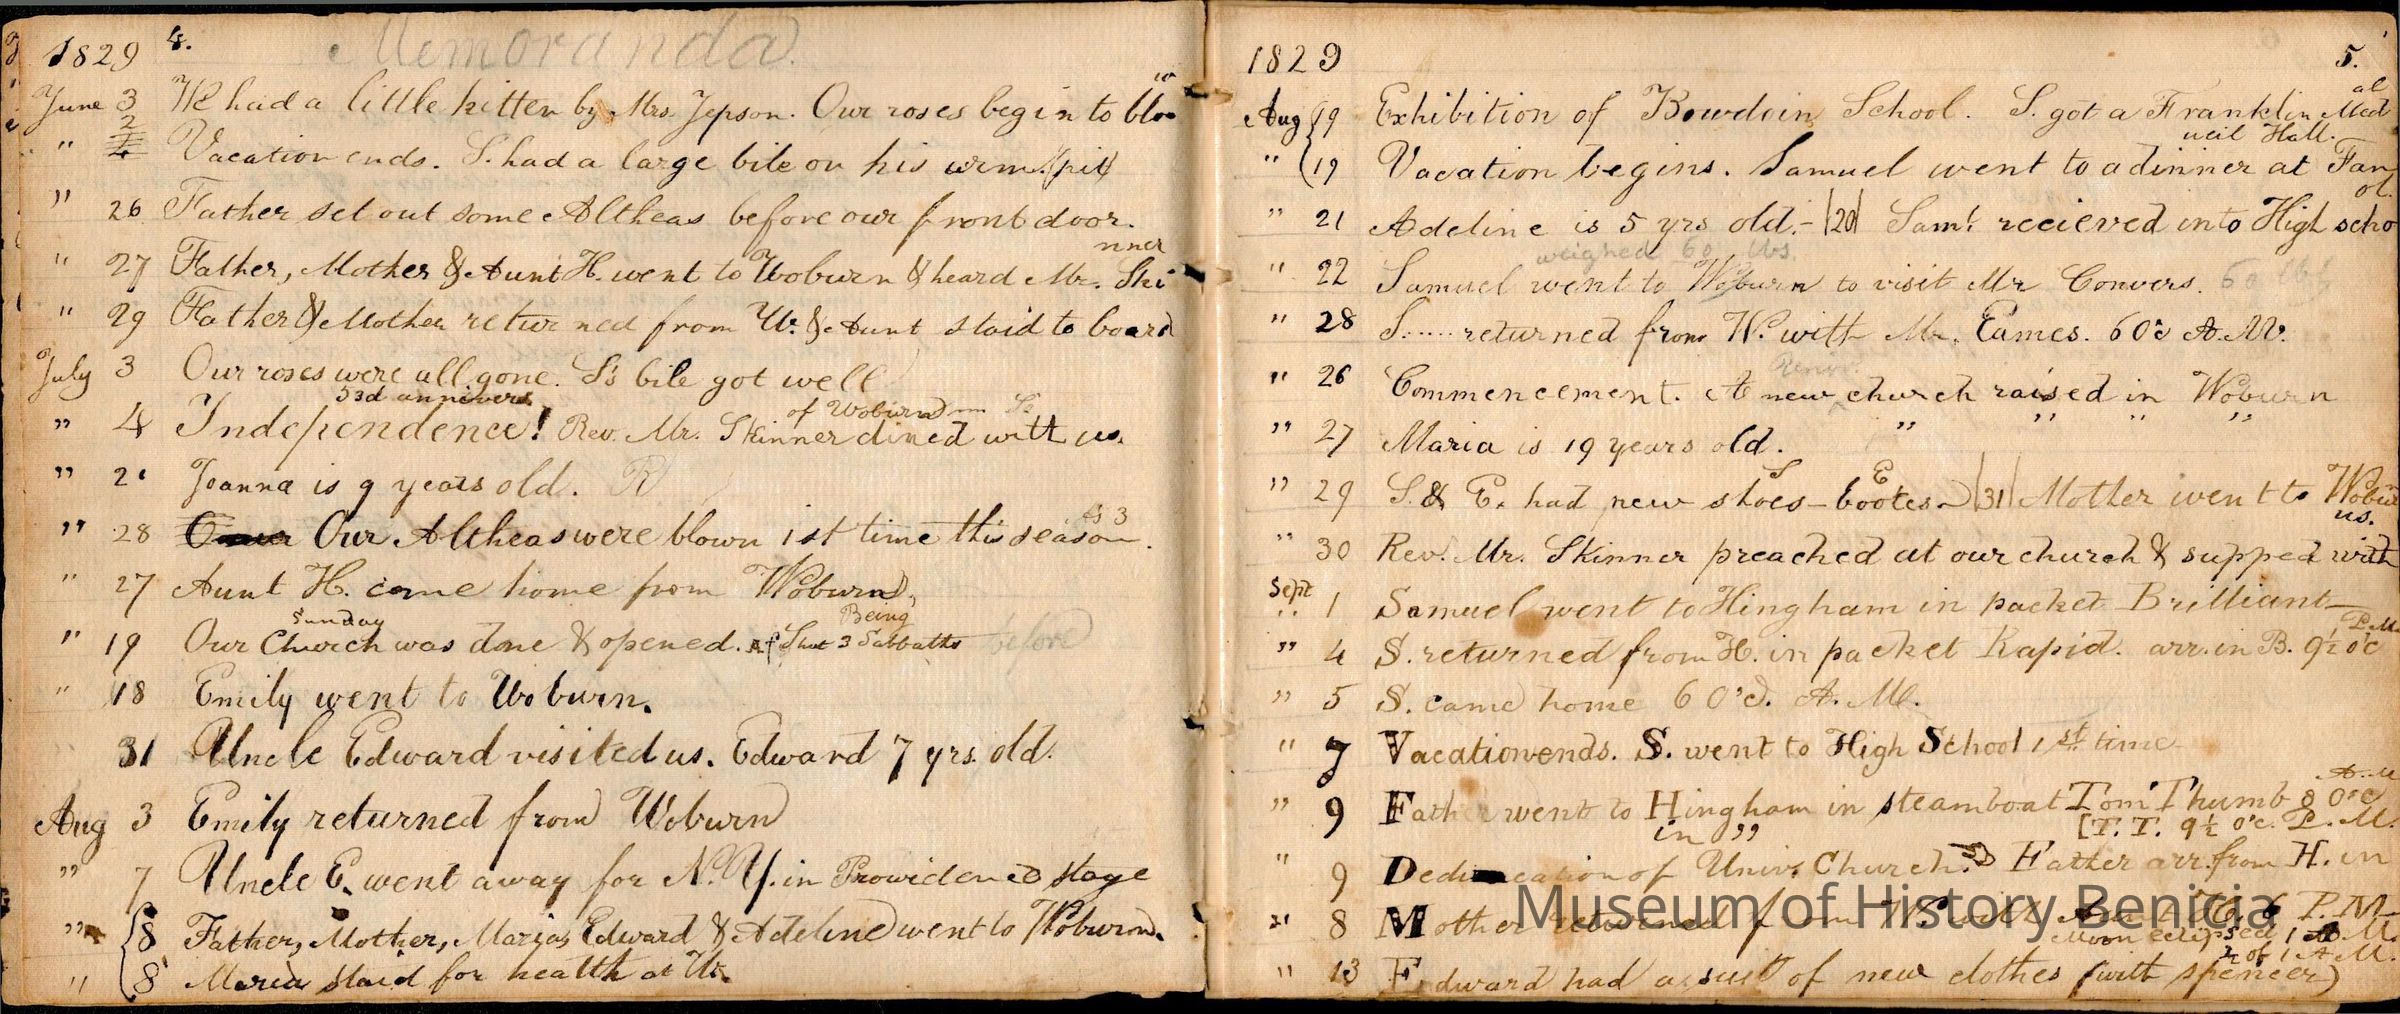 1829 4. Memoranda.
June 3 We had a little kitten by Mrs. Jepson. Our roses begin to bloo
" 2 Vacation ends. S. had a large bile on his arm. (pit)
" 26 Father set out some Altheas before our front door.
" 27 Father, Mother & Aunt H. went to Woburn & heard Mr. Skinner
" 29 Father & Mother returned from W. & Aunt staid to board
July 3 Our roses were all gone. S's bile got well
53d annivers.
" 4 Independence! Rev. Mr. Skinner of Woburn dined with us.
" 21 Joanna is 9 years old. R
" 28 Our Altheas were blown 1st time this season.
" 27 Aunt H. came home from Woburn,
" 19 Our Church was done & opened. Sunday Af Shut 3 Sabbaths Being before
" 18 Emily went to Woburn.
31 Uncle Edward visited us. Edward 7 yrs. old.
Aug 3 Emily returned from Woburn
" 7 Uncle E. went away for N. Y. in Providence stage
" 8 Father, Mother, Maria, Edward & Adeline went to Woburn.
" 8 Maria staid for health at W.
1829 5.
Aug 19 Exhibition of Bowdoin School. S. got a Franklin Medal
" 19 Vacation begins. Samuel went to a dinner at Fanueil Hall.
" 21 Adeline is 5 yrs old.- |20| Saml. recieved into High school.
weighed 60 lbs.
" 22 Samuel went to Woburn to visit Mr Convers. 60 lbs
" 28 S...... returned from W. with Mr. Eames. 6 O'c A.M.
" 26 Commencement. A new church raised in Woburn
" 27 Maria is 19 years old. " " " "
" 29 S. & E. had new shoes - bootes |31| Mother went to Woburn
S E
" 30 Rev. Mr. Skinner preached at our church & supped with us.
Sept " 1 Samuel went to Hingham in packet Brilliant
" 4 S. returned from H. in packet Rapid. arr. in B. 9½ o'c P.M.
" 5 S. came home 6 O'c. A. M.
" 7 Vacation ends. S. went to High School 1st. time
" 9 Father went to Hingham in steamboat Tom Thumb 8 O'c A.M
in " [T. T. 9½ O'c. P. M.
" 9 Dedication of Univ. Church. Father arr. from H. in
" 8 Mother returned from W. with Aunt H. 6 P.M.
Moon eclipsed 1 A M.
" 13 Edward had a suit of new clothes (with spencer)
Museum of History Benicia